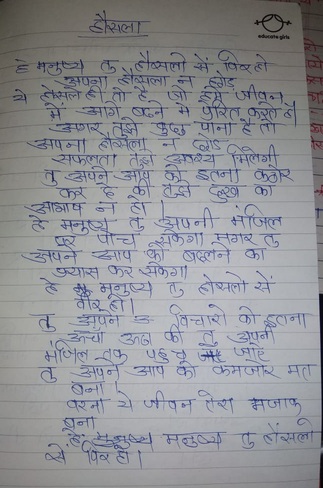 educate girls
हौसला
हे मनुष्य तु हौसलो से विर हो
अपना हौसला न छोड
ये हौसले ही तो है जो हमे जीवन
में आगे बढने मे प्रेरित करते है
अगर तुझे कुछ पाना है तो
अपना हौसला न छोड
सफलता तुझे अवश्य मिलेगी
तु अपने आप को इतना कठोर
कर दे की तुझे दुख का
आभाष न हो।
हे मनुष्य तु अपनी मंजिल
पर पोंच सकेगा मगर तु
अपने आप को बदलने का
प्रयास कर सकेगा।
हे मनुष्य तु हौसलो से
वीर हो।
तु अपने विचारो को इतना
ऊचा ऊठा की तु अपनी
मंजिल तक पहुच जाए
तु अपने आप को कमजोर मत
बना।
वरना ये जीवन तेरा मजाक
बना
हे मनुष्य तु होंसलो
से विर हो।